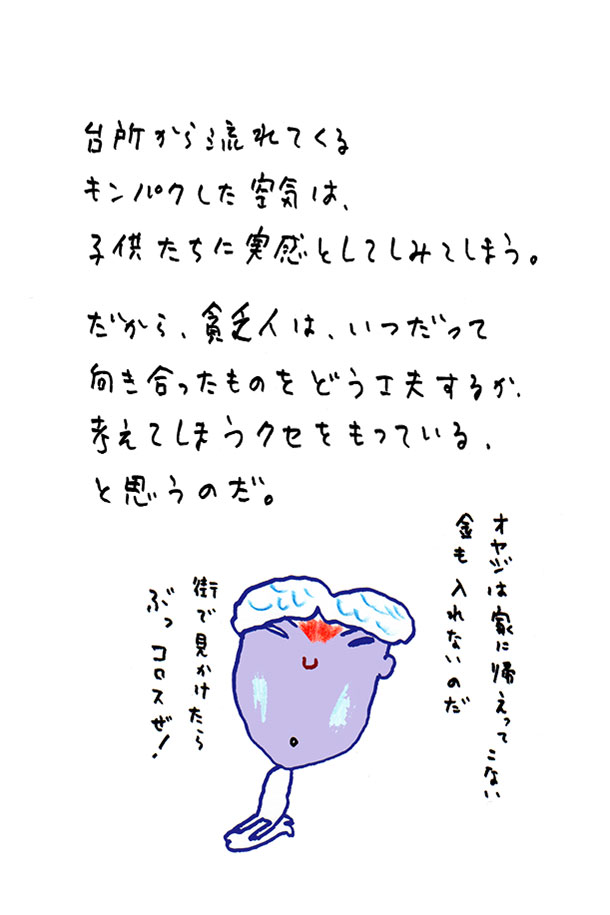 台所から流れてくる
キンパクした空気は、
子供たちに実感としてしみてしまう。
だから、貧乏人は、いつだって
向き合ったものをどう工夫するか、
考えてしまうクセをもっている、
と思うのだ。
オヤジは家に帰えってこない
金も入れないのだ
街で見かけたら
ぶっコロスぜ!